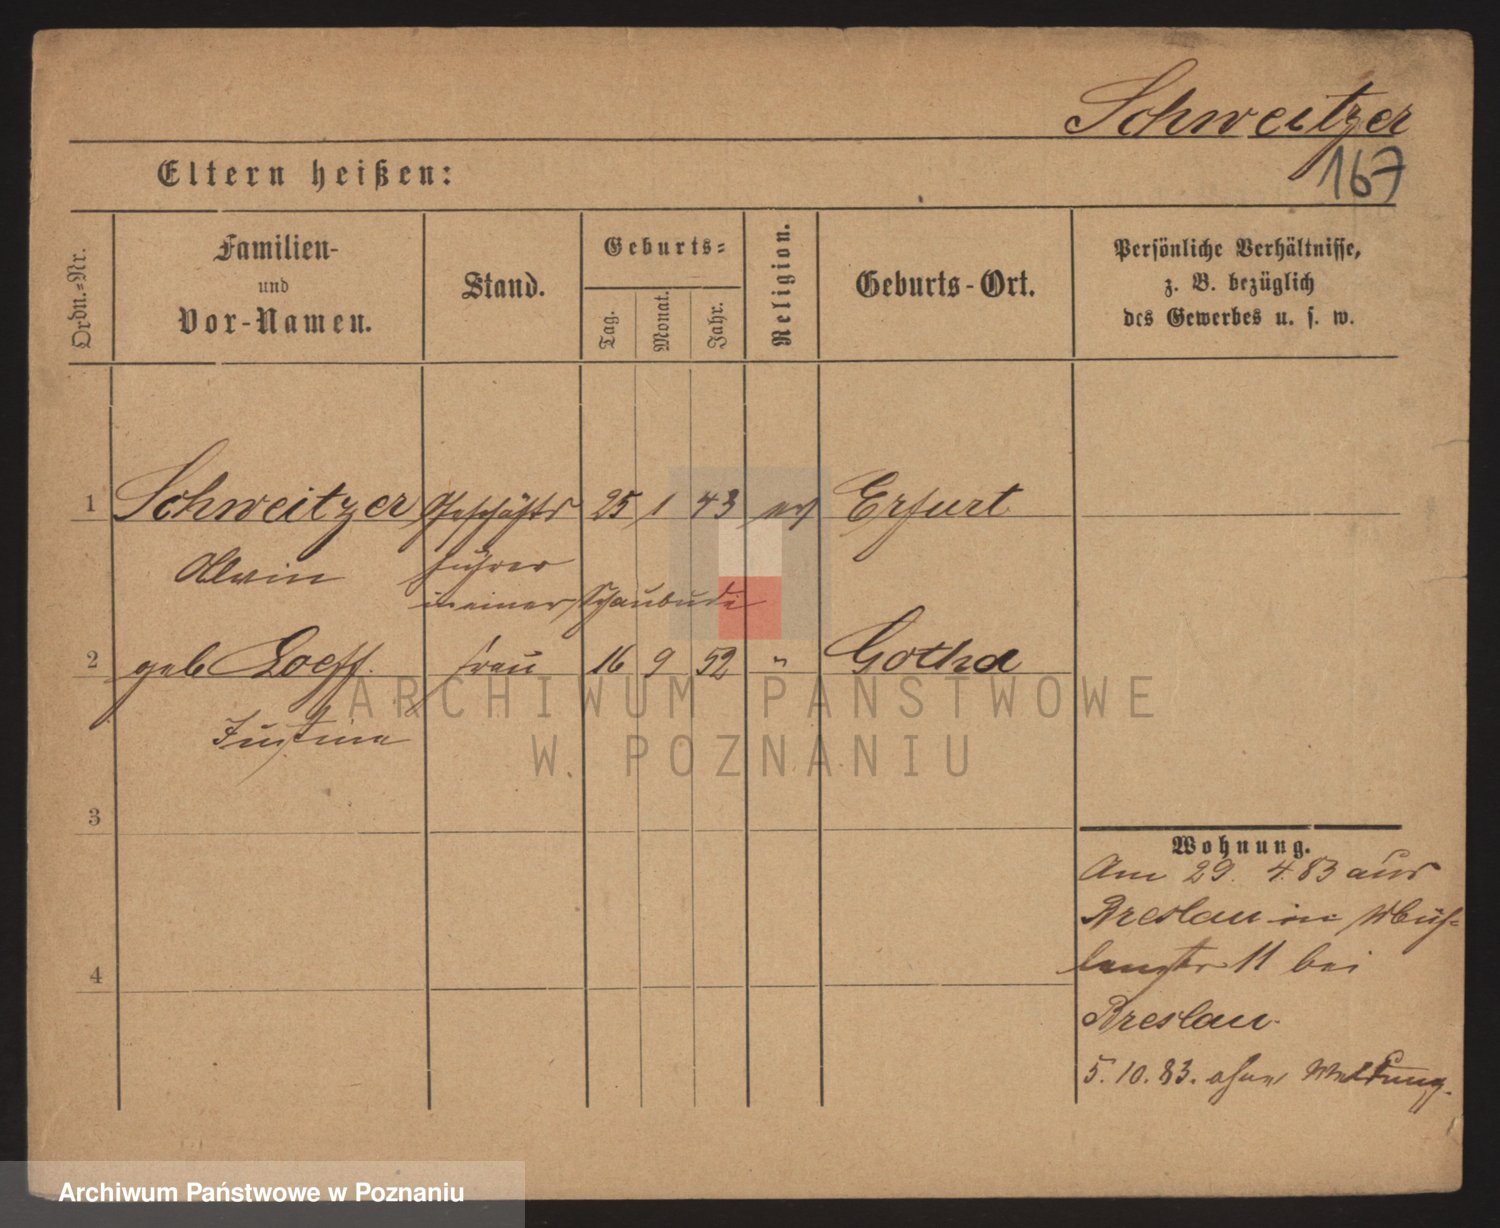 Schweitzer
167
Eltern heißen:
Ordn.-Nr.
Familien-
und
Vor-Namen.
Stand.
Geburts-
Tag.
Monat.
Jahr.
Religion.
Geburts-Ort.
Persönliche Verhältnisse,
z. B. bezüglich
des Gewerbes u. s. w.
1 Schweitzer Geschäfts 25 1 43 ev Erfurt
Alwin führer
in einer Schaubude
2 geb Loeff. frau 16 9 52 " Gotha
Justine
3
4
Wohnung.
Am 29. 4. 83 aus
Breslau in
11 bei
Breslau.
5. 10. 83. ohne Meldung.
ARCHIWUM PAŃSTWOWE
W POZNANIU
Archiwum Państwowe w Poznaniu